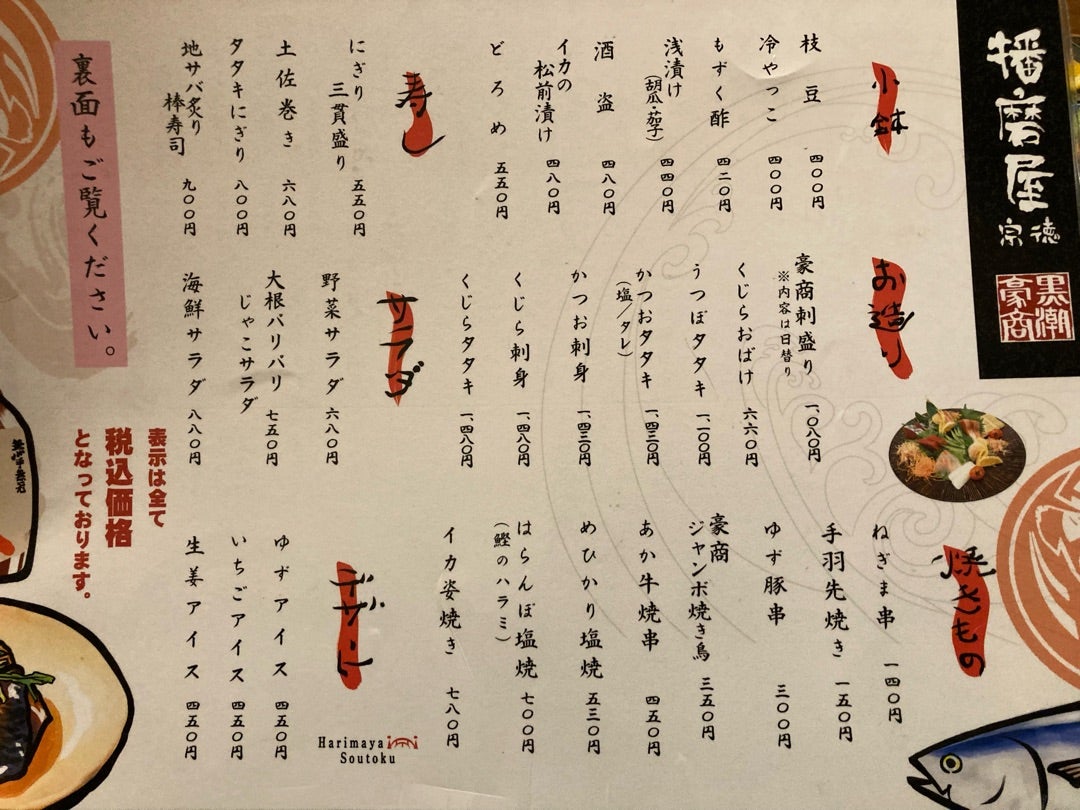 播磨屋
宗徳
黒潮
豪商
小鉢
枝豆 四〇〇円
冷やっこ 四〇〇円
もずく酢 四二〇円
浅漬け
(胡瓜・茄子) 四四〇円
酒盗 四八〇円
イカの
松前漬け 四八〇円
どろめ 五五〇円
寿し
にぎり
三貫盛り 五五〇円
土佐巻き 六八〇円
タタキにぎり 八〇〇円
地サバ炙り
棒寿司 九〇〇円
お造り
豪商刺盛り 一、〇八〇円
※内容は日替り
くじらおばけ 六六〇円
うつぼタタキ 一、一〇〇円
かつおタタキ 一、四三〇円
(塩/タレ)
かつお刺身 一、四三〇円
くじら刺身 一、四八〇円
くじらタタキ 一、四八〇円
サラダ
野菜サラダ 六八〇円
大根パリパリ
じゃこサラダ 七五〇円
海鮮サラダ 八八〇円
焼きもの
ねぎま串 一四〇円
手羽先焼き 一五〇円
ゆず豚串 三〇〇円
豪商
ジャンボ焼き鳥 三五〇円
あか牛焼串 四五〇円
めひかり塩焼 五三〇円
はらんぼ塩焼 七〇〇円
(鰹のハラミ)
イカ姿焼き 七八〇円
デザート
ゆずアイス 四五〇円
いちごアイス 四五〇円
生姜アイス 四五〇円
裏面もご覧ください。
表示は全て
税込価格
となっております。
Harimaya
Soutoku